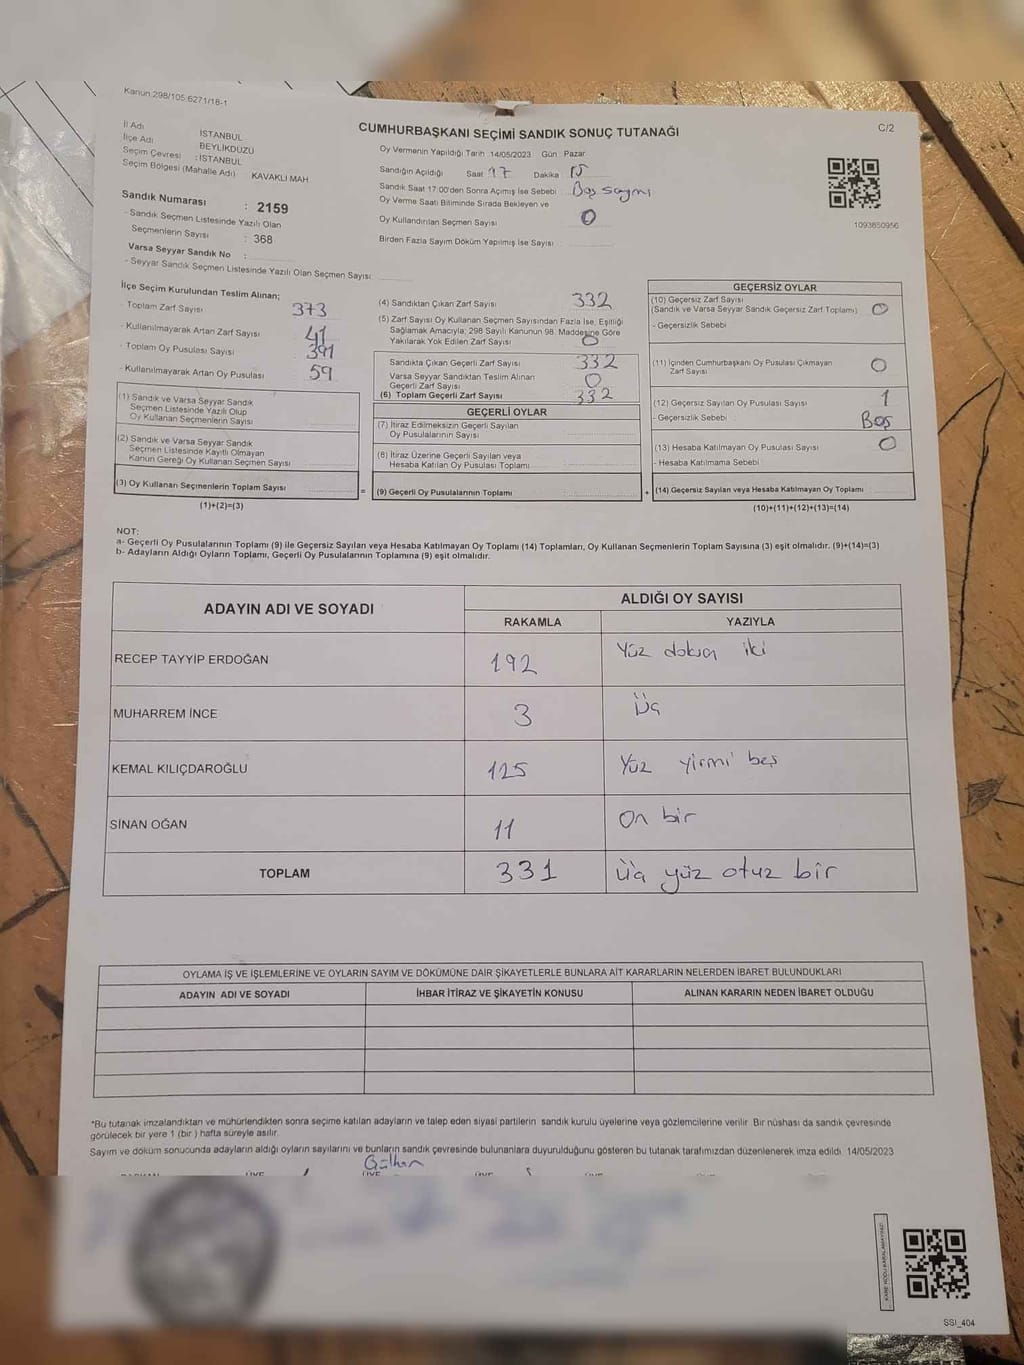 Kanun:298/105:6271/18-1
CUMHURBAŞKANI SEÇİMİ SANDIK SONUÇ TUTANAĞI
C/2
İl Adı İSTANBUL
İlçe Adı BEYLİKDÜZÜ
Seçim Çevresi :İSTANBUL
Seçim Bölgesi (Mahalle Adı) : KAVAKLI MAH.
Sandık Numarası : 2159
- Sandık Seçmen Listesinde Yazılı Olan
Seçmenlerin Sayısı : 368
Varsa Seyyar Sandık No :
- Seyyar Sandık Seçmen Listesinde Yazılı Olan Seçmen Sayısı:
Oy Vermenin Yapıldığı Tarih :14/05/2023 Gün : Pazar
Sandığın Açıldığı Saat 17 Dakika 15
Sandık Saat 17:00'den Sonra Açımış İse Sebebi : Boş sayımı
Oy Verme Saati Bitiminde Sırada Bekleyen ve
Oy Kullandırılan Seçmen Sayısı 0
Birden Fazla Sayım Döküm Yapılmış İse Sayısı
1093650956
İlçe Seçim Kurulundan Teslim Alınan;
- Toplam Zarf Sayısı 373
- Kullanılmayarak Artan Zarf Sayısı 41
- Toplam Oy Pusulası Sayısı 391
- Kullanılmayarak Artan Oy Pusulası 59
(1) Sandık ve Varsa Seyyar Sandık
Seçmen Listesinde Yazılı Olup
Oy Kullanan Seçmenlerin Sayısı
(2) Sandık ve Varsa Seyyar Sandık
Seçmen Listesinde Kayıtlı Olmayan
Kanun Gereği Oy Kullanan Seçmen Sayısı
(3) Oy Kullanan Seçmenlerin Toplam Sayısı
(1)+(2)=(3)
(4) Sandıktan Çıkan Zarf Sayısı 332
(5) Zarf Sayısı Oy Kullanan Seçmen Sayısından Fazla İse, Eşitliği
Sağlamak Amacıyla; 298 Sayılı Kanunun 98. Maddesine Göre
Yakılarak Yok Edilen Zarf Sayısı 0
Sandıkta Çıkan Geçerli Zarf Sayısı 332
Varsa Seyyar Sandıktan Teslim Alınan
Geçerli Zarf Sayısı 0
(6) Toplam Geçerli Zarf Sayısı 332
GEÇERLİ OYLAR
(7) İtiraz Edilmeksizin Geçerli Sayılan
Oy Pusulalarının Sayısı
(8) İtiraz Üzerine Geçerli Sayılan veya
Hesaba Katılan Oy Pusulası Toplamı
= (9) Geçerli Oy Pusulalarının Toplamı :
GEÇERSİZ OYLAR
(10) Geçersiz Zarf Sayısı
(Sandık ve Varsa Seyyar Sandık Geçersiz Zarf Toplamı) 0
- Geçersizlik Sebebi
(11) İçinden Cumhurbaşkanı Oy Pusulası Çıkmayan
Zarf Sayısı 0
(12) Geçersiz Sayılan Oy Pusulası Sayısı 1
- Geçersizlik Sebebi Boş
(13) Hesaba Katılmayan Oy Pusulası Sayısı 0
- Hesaba Katılmama Sebebi
+ (14) Geçersiz Sayılan veya Hesaba Katılmayan Oy Toplamı
(10)+(11)+(12)+(13)=(14)
NOT:
a- Geçerli Oy Pusulalarının Toplamı (9) ile Geçersiz Sayılan veya Hesaba Katılmayan Oy Toplamı (14) Toplamları, Oy Kullanan Seçmenlerin Toplam Sayısına (3) eşit olmalıdır. (9)+(14)=(3)
b- Adayların Aldığı Oyların Toplamı, Geçerli Oy Pusulalarının Toplamına (9) eşit olmalıdır.
ADAYIN ADI VE SOYADI ALDIĞI OY SAYISI
RAKAMLA YAZIYLA
RECEP TAYYİP ERDOĞAN 192 Yüz doksan iki
MUHARREM İNCE 3 Üç
KEMAL KILIÇDAROĞLU 125 Yüz yirmi beş
SİNAN OĞAN 11 On bir
TOPLAM 331 Üç yüz otuz bir
OYLAMA İŞ VE İŞLEMLERİNE VE OYLARIN SAYIM VE DÖKÜMÜNE DAİR ŞİKAYETLERLE BUNLARA AİT KARARLARIN NELERDEN İBARET BULUNDUKLARI
ADAYIN ADI VE SOYADI İHBAR İTİRAZ VE ŞİKAYETİN KONUSU ALINAN KARARIN NEDEN İBARET OLDUĞU
*Bu tutanak imzalandıktan ve mühürlendikten sonra seçime katılan adayların ve talep eden siyasi partilerin sandık kurulu üyelerine veya gözlemcilerine verilir. Bir nüshası da sandık çevresinde
görülecek bir yere 1 (bir ) hafta süreyle asılır.
Sayım ve döküm sonucunda adayların aldığı oyların sayılarını ve bunların sandık çevresinde bulunanlara duyurulduğunu gösteren bu tutanak tarafımızdan düzenlenerek imza edildi. 14/05/2023
Gülhan
SSI_404